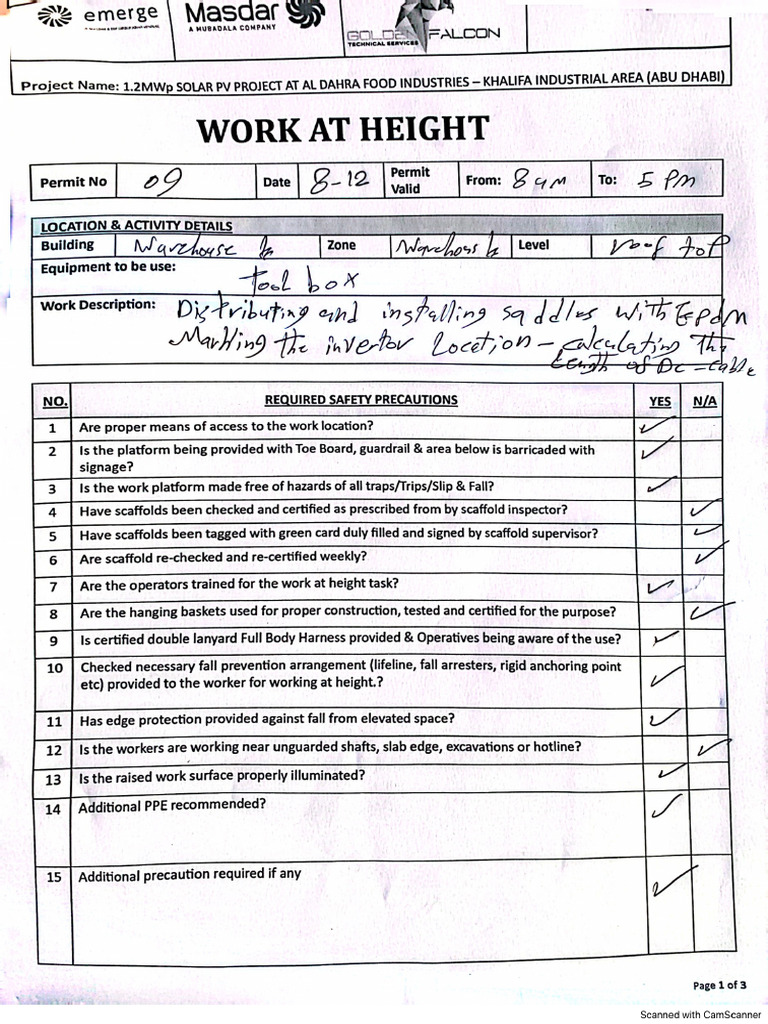 emerge
Masdar
A MUBADALA COMPANY
GOLDEN FALCON
TECHNICAL SERVICES
Project Name: 1.2MWp SOLAR PV PROJECT AT AL DAHRA FOOD INDUSTRIES – KHALIFA INDUSTRIAL AREA (ABU DHABI)
WORK AT HEIGHT
Permit No 09 Date 8-12 Permit Valid From: 8 am To: 5 pm
LOCATION & ACTIVITY DETAILS
Building Warehouse Zone Level roof top
Equipment to be use: Tool box
Work Description: Distributing and installing saddles with Epdm
Marking the invertor Location - calculating the
Length of Dc-cable
NO. REQUIRED SAFETY PRECAUTIONS YES N/A
1 Are proper means of access to the work location? ✓
2 Is the platform being provided with Toe Board, guardrail & area below is barricaded with ✓
signage?
3 Is the work platform made free of hazards of all traps/Trips/Slip & Fall? ✓
4 Have scaffolds been checked and certified as prescribed from by scaffold inspector? ✓
5 Have scaffolds been tagged with green card duly filled and signed by scaffold supervisor? ✓
6 Are scaffold re-checked and re-certified weekly? ✓
7 Are the operators trained for the work at height task? ✓
8 Are the hanging baskets used for proper construction, tested and certified for the purpose? ✓
9 Is certified double lanyard Full Body Harness provided & Operatives being aware of the use? ✓
10 Checked necessary fall prevention arrangement (lifeline, fall arresters, rigid anchoring point ✓
etc) provided to the worker for working at height.?
11 Has edge protection provided against fall from elevated space? ✓
12 Is the workers are working near unguarded shafts, slab edge, excavations or hotline? ✓
13 Is the raised work surface properly illuminated? ✓
14 Additional PPE recommended? ✓
15 Additional precaution required if any ✓
Page 1 of 3
Scanned with CamScanner